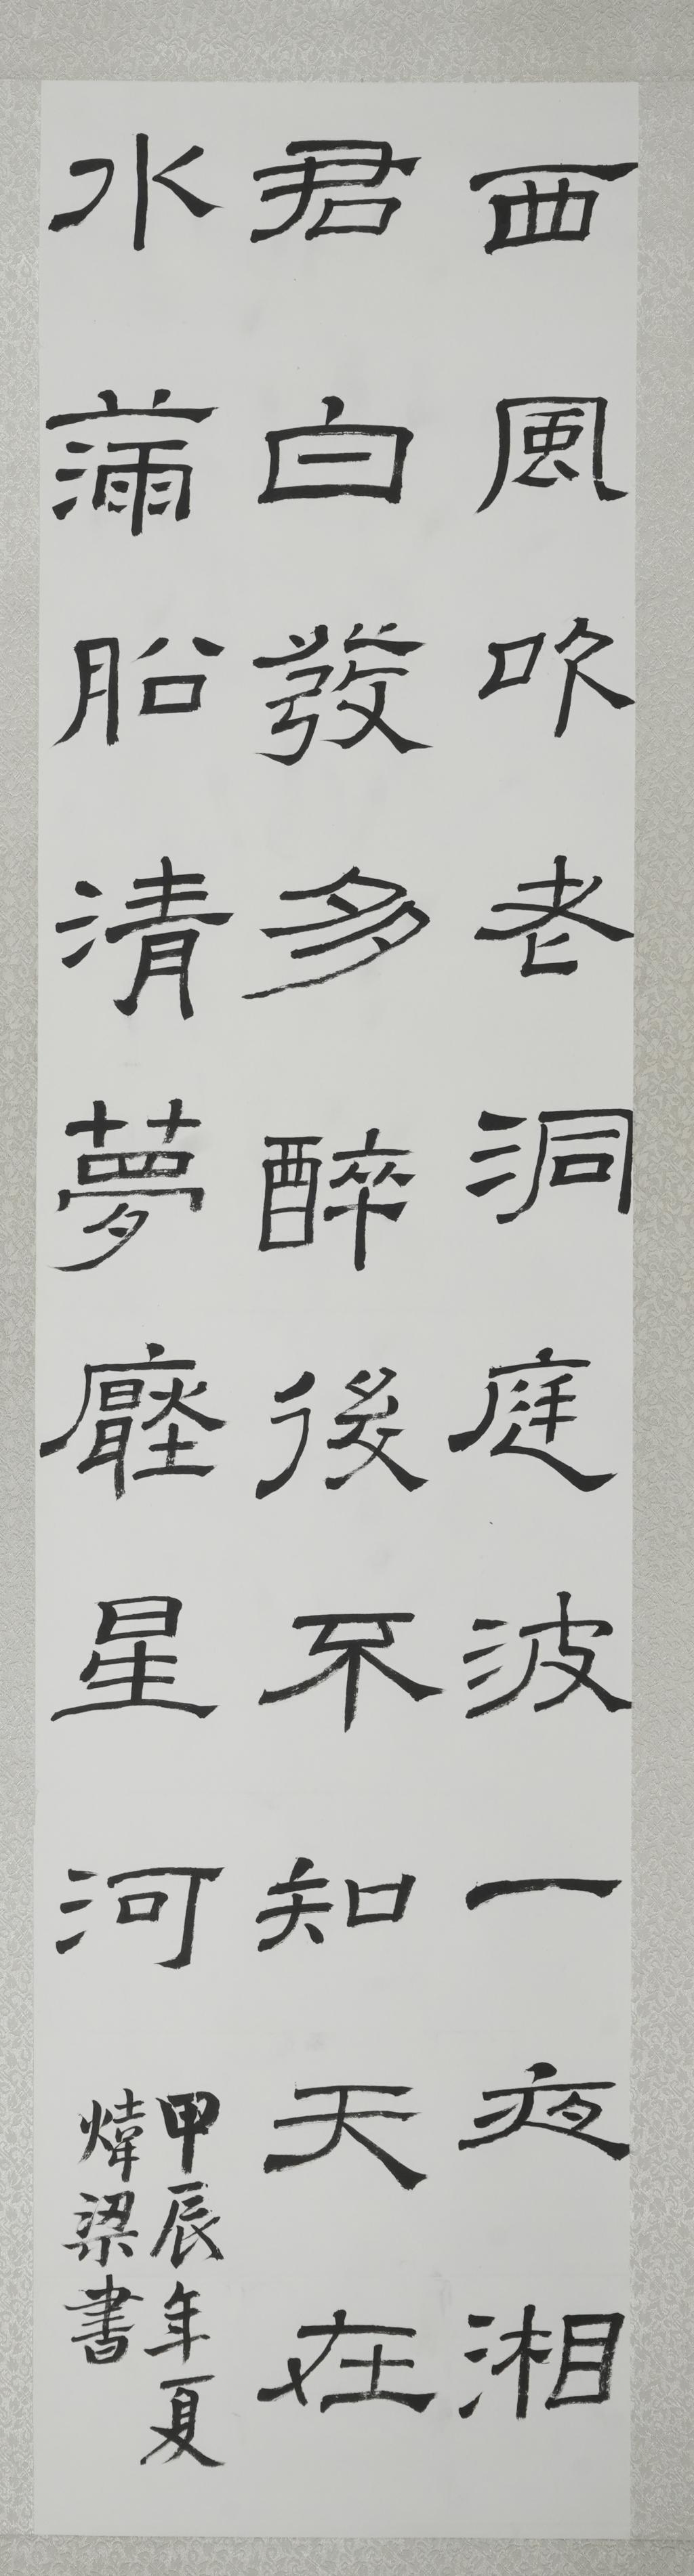 西風吹老洞庭波一夜湘
君白發多醉後不知天在
水滿船清夢壓星河
甲辰年夏
煒梁書